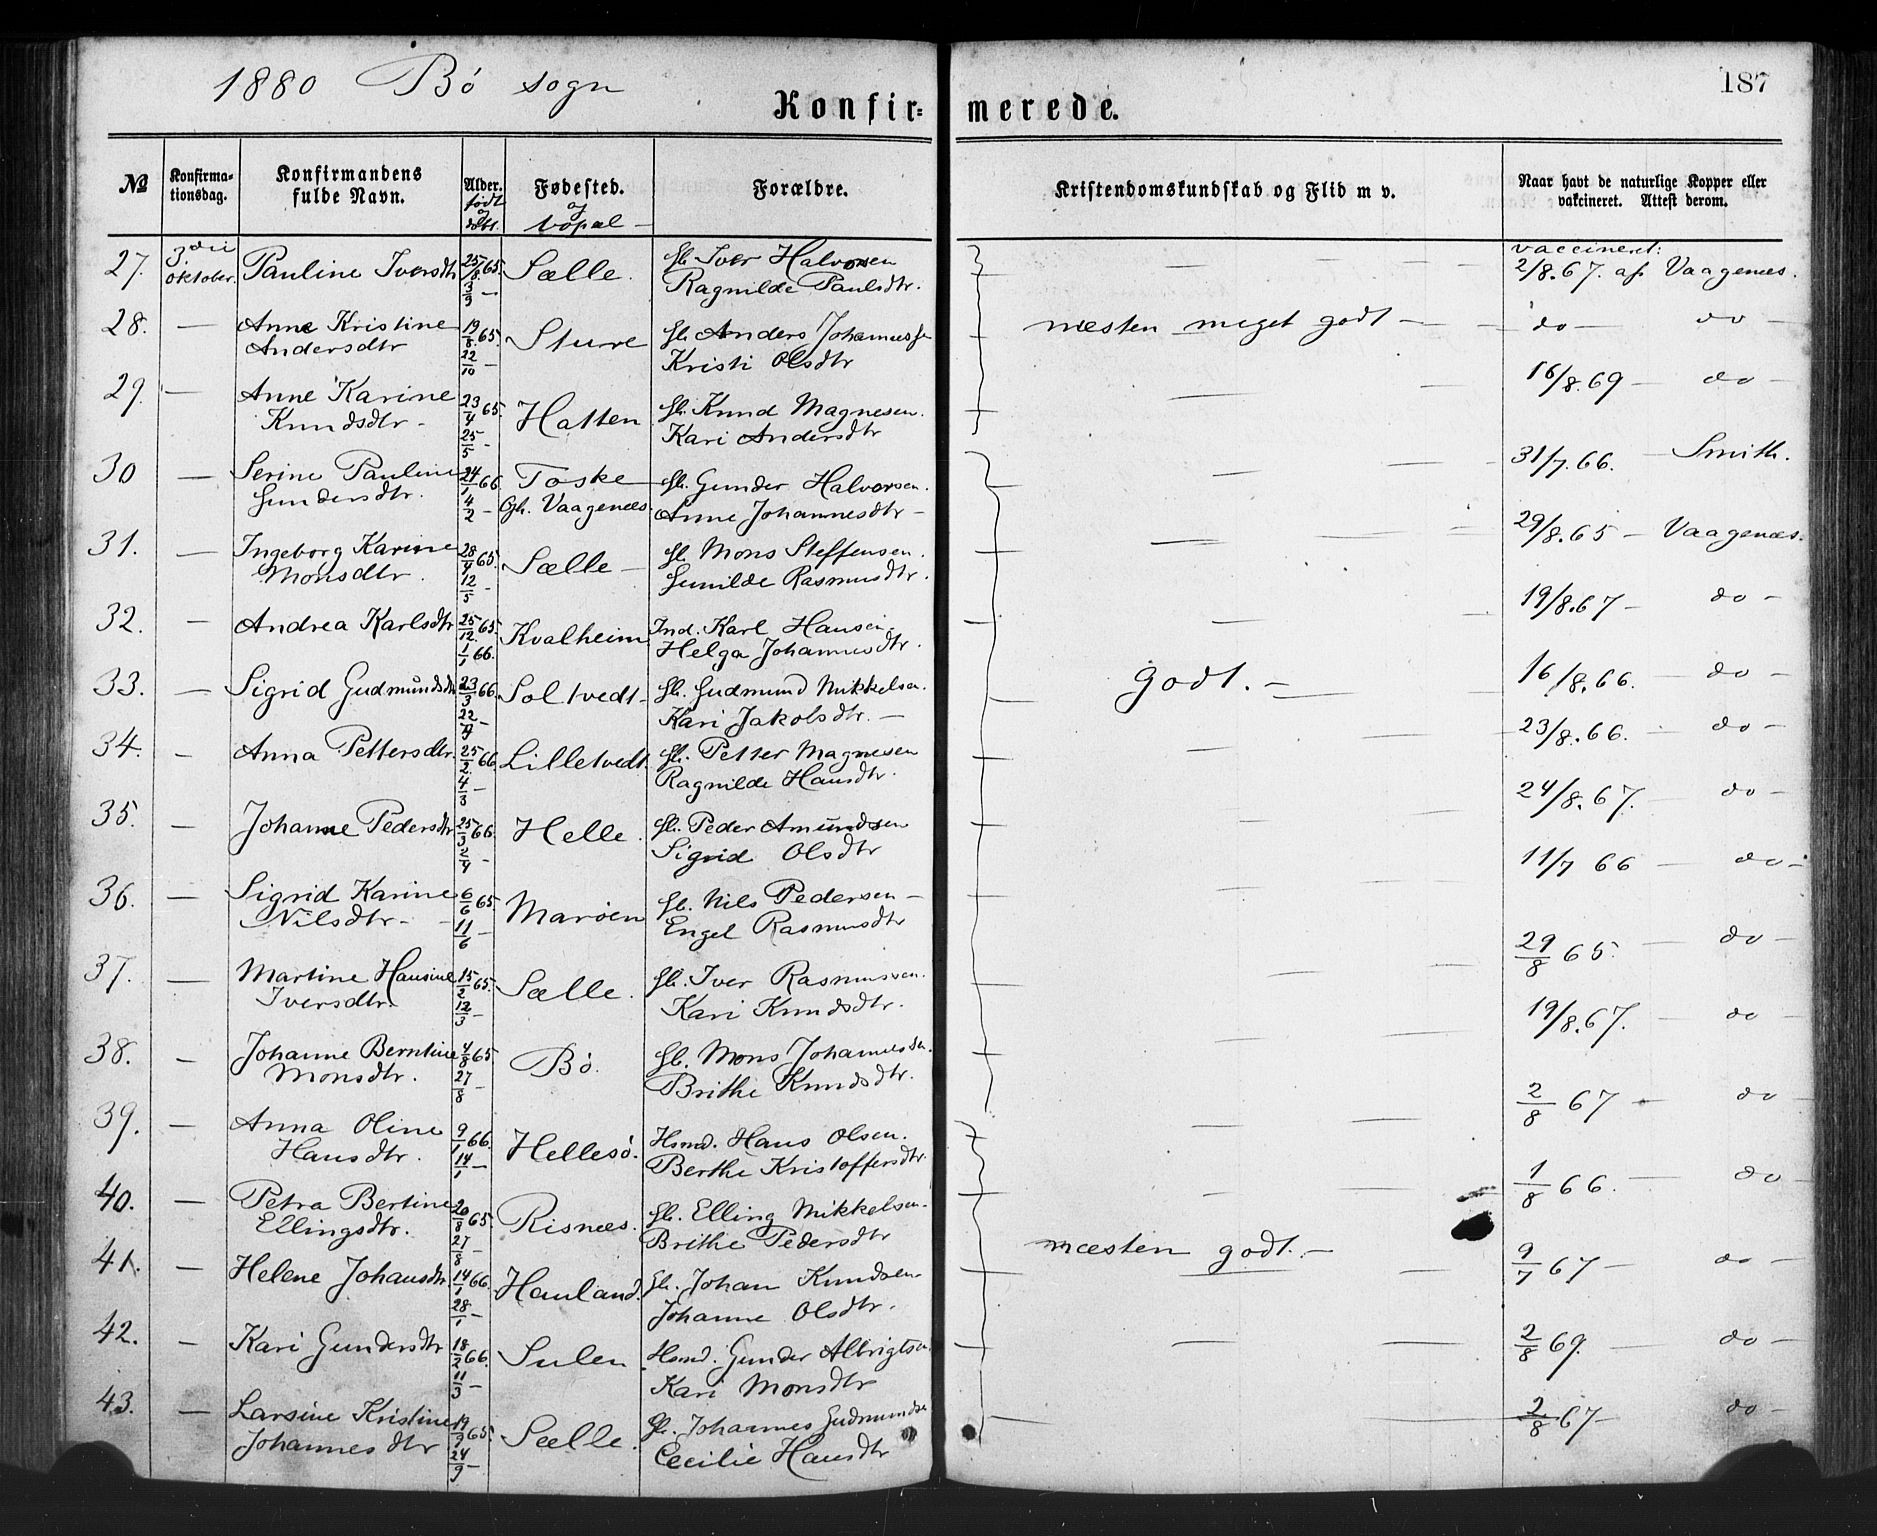 1880 Bø sogn
187
Konfirmerede.
№ Konfirmationsdag. Konfirmandens fulde Navn. Alder. født og døbt. Fødested. og bopæl Forældre. Kristendomskundskab og Flid m v. Naar havt de naturlige Kopper eller vakcineret. Attest derom.
27. 3die oktober. Pauline Iversdtr 25/8 65. 3/9 — Sælle. Gb. Iver Halvorsen Ragnilde Paulsdtr. — — — vaccineret: 2/8.67. af Vaagenæs.
28. — Anne Kristine Andersdtr 19/8 65. 22/10 — Sture Gb. Anders Johanness. Kristi Olsdtr næsten meget godt — do — do —
29. — Anne Karine Knudsdtr - 23/4 65. 25/5 - Hatten Gb. Knud Magnesen. Kari Andersdtr — — 16/8.69 — do —
30 — Serine Pauline Gundersdtr. 24/1 66 4/2 - Toske Gh. Vaagenæs. Gb. Gunder Halvorsen. Anne Johannesdtr - — — 31/7.66. — Smith.
31. — Ingeborg Karine Monsdtr. 28/4 65. 12/5 - Sælle — Gb. Mons Steffensen. Gunilde Rasmusdtr. — — 29/8.65 — Vaagenæs.
32. — Andrea Karlsdtr 25/12 65. 1/1 66. Kvalheim. Ind. Karl Hansen. Helga Johannesdtr. — — 19/8.67 — do —
33. — Sigrid Gudmundsdtr 23/3 66. 22/4 — Soltvedt - Gb. Gudmund Mikkelsen. Kari Jakobsdtr. — godt. — — 16/8.66. — do —
34. — Anna Pettersdtr. 25/2 66. 4/3 — Lilletvedt. Gb. Petter Magnesen Ragnilde Hansdtr. — — 23/8.66. — do —
35. — Johanne Pedersdtr 25/3 66. 2/4 - Helle. Gb. Peder Amundsen Sigrid Olsdtr — — 24/8.67. — do —
36. — Sigrid Karine Nilsdtr - 6/6 65. 11/6 — Marøen Gb. Nils Pedersen — Engel Rasmusdtr — — 11/7 66 — do —
37. — Martine Hansine Iversdtr. 15/2 65. 12/3 — Sælle. Gb. Iver Rasmussen. Kari Knudsdtr. — — 29/8 65. — do —
38. — Johanne Berntine Monsdtr. 4/8 65 27/8 — Bø. Gb. Mons Johannessen. Brithe Knudsdtr. — — 19/8.67. — do —
39. — Anna Oline Hansdtr. 9/1 66. 14/1 — Hellesø. Hsmd. Hans Olsen. Berthe Kristoffersdtr. — — 2/8 67 — do —
40. — Petra Bertine Ellingsdtr. 20/8 65. 27/8 — Risnæs. Gb. Elling Mikkelsen. Brithe Pedersdtr — — 1/8 66. — do —
41. — Helene Johansdtr. 14/1 66. 28/1 — Hauland. Gb. Johan Knudsen Johanne Olsdtr. næsten godt. — — 9/7 67 — do —
42. — Kari Gundersdtr 18/2 66. 11/3 — Sulen Hsmd. Gunder Albrigtsen. Kari Monsdtr — — 2/8 69. — do —
43. — Larsine Kristine Johannesdtr 19/9 65. 24/9 — Sælle. Gb. Johannes Gudmundsen Cecilie Hansdtr — 2/8 67 — do —